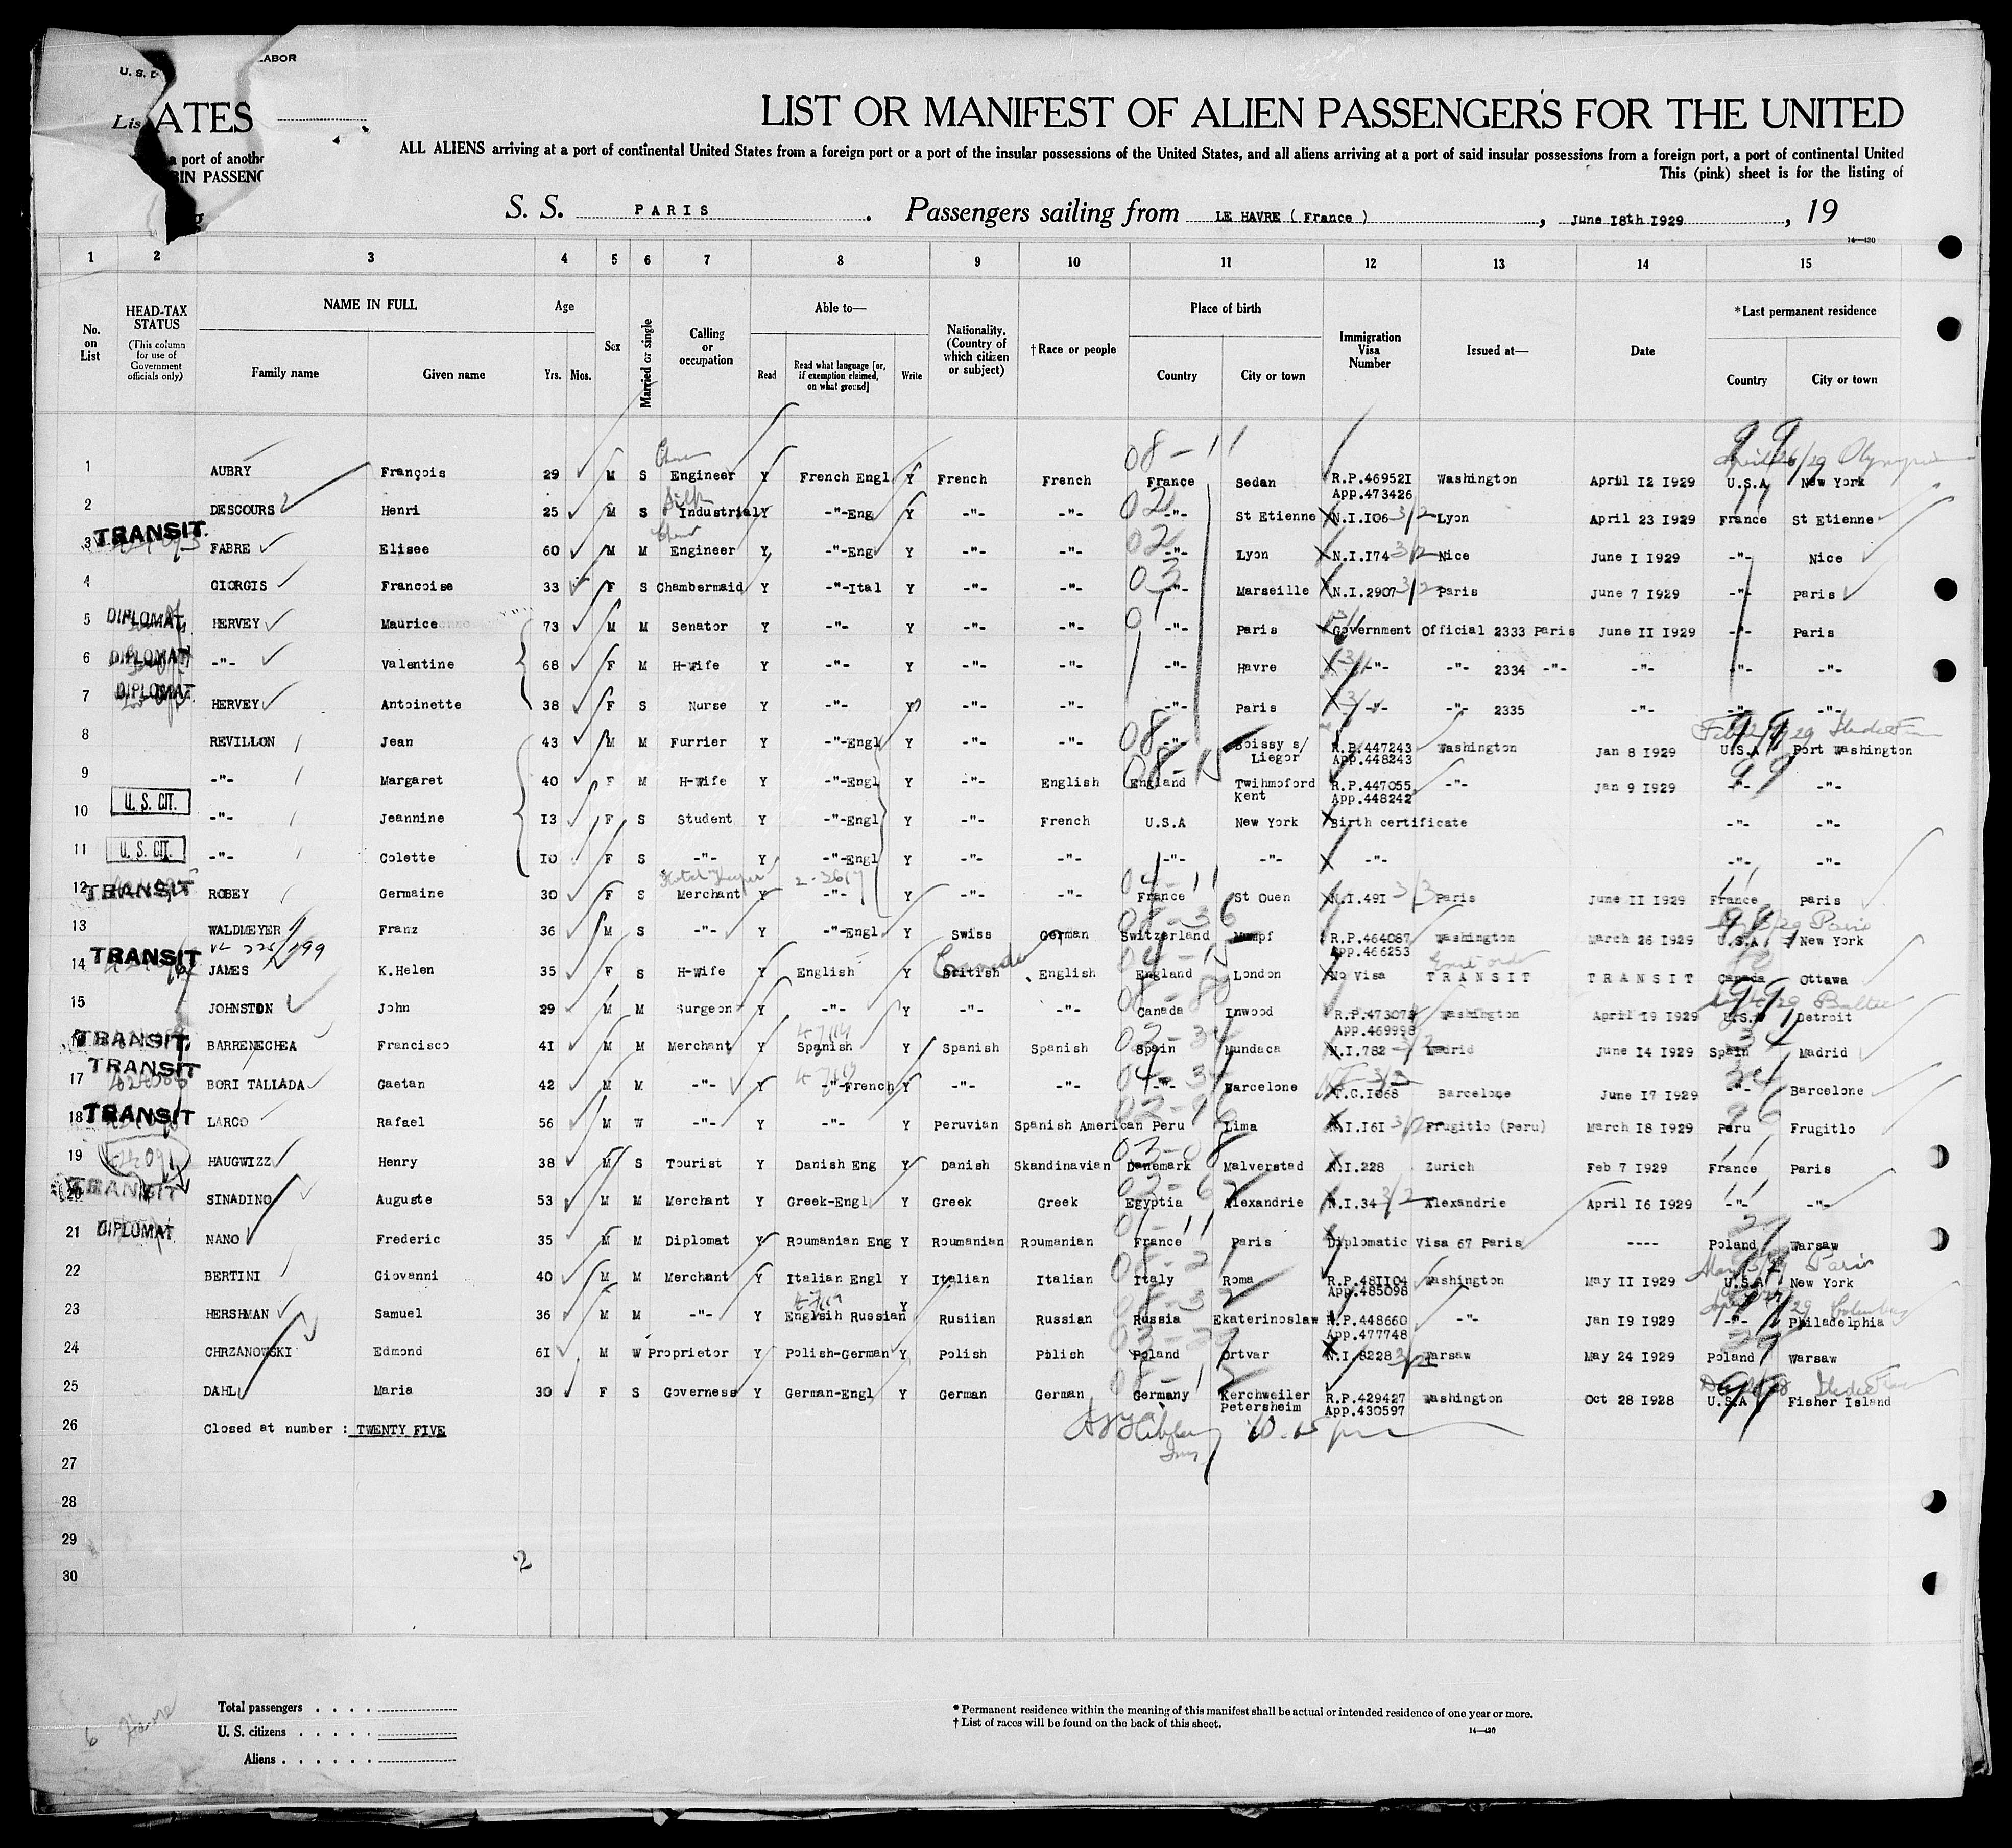 U. S. D
LABOR
Lis ATES
LIST OR MANIFEST OF ALIEN PASSENGERS FOR THE UNITED
a port of anothe
BIN PASSENG
ALL ALIENS arriving at a port of continental United States from a foreign port or a port of the insular possessions of the United States, and all aliens arriving at a port of said insular possessions from a foreign port, a port of continental United
This (pink) sheet is for the listing of
S. S. PARIS . Passengers sailing from LE HAVRE ( France ) , June I8th I929 , 19
14—430
1 2 3 4 5 6 7 8 9 10 11 12 13 14 15
No. on List
HEAD-TAX STATUS (This column for use of Government officials only)
NAME IN FULL
Family name Given name
Age Yrs. Mos.
Sex
Married or single
Calling or occupation
Able to—
Read
Read what language [or, if exemption claimed, on what ground]
Write
Nationality. (Country of which citizen or subject)
†Race or people
Place of birth
Country City or town
Immigration Visa Number
Issued at—
Date
*Last permanent residence
Country City or town
1 AUBRY François 29 M S Engineer Y French Engl Y French French 08-11 France Sedan R.P.46952I App.473426 Washington April I2 I929 99 U.S.A New York
2 DESCOURS Henri 25 M S Silk Industrial Y -"-Eng Y -"- -"- 02 -"- St Etienne N.I.I06 3/2 Lyon April 23 I929 France St Etienne
3 TRANSIT FABRE Elisee 60 M M Engineer Y -"-Eng Y -"- -"- 02 -"- Lyon N.I.I74 3/2 Nice June I I929 -"- Nice
4 GIORGIS Francoise 33 F S Chambermaid Y -"-Ital Y -"- -"- 03 -"- Marseille N.I.2907 3/2 Paris June 7 I929 -"- Paris
5 DIPLOMAT HERVEY Maurice 73 M M Senator Y -"- Y -"- -"- 01 -"- Paris Government Official 2333 Paris June II I929 -"- Paris
6 DIPLOMAT -"- Valentine 68 F M H-wife Y -"- Y -"- -"- -"- Havre -"- -"- 2334 -"- -"- -"- -"-
7 DIPLOMAT HERVEY Antoinette 38 F S Nurse Y -"- Y -"- -"- -"- Paris -"- -"- 2335 -"- -"- -"-
8 REVILLON Jean 43 M M Furrier Y -"-Engl Y -"- -"- 08 -"- Boissy s/ Liegor R.P.447243 App.448243 Washington Jan 8 I929 99 U.S.A Port Washington
9 -"- Margaret 40 F M H-wife Y -"-Engl Y -"- English 08-15 England Twihmoford Kent R.P.447055 App.448242 -"- Jan 9 I929 99 -"- -"-
10 U. S. CIT. -"- Jeannine I3 F S Student Y -"-Engl Y -"- French U.S.A New York Birth certificate -"- -"-
11 U. S. CIT. -"- Colette I0 F S -"- Y -"-Engl Y -"- -"- -"- -"- -"- -"- -"-
12 TRANSIT ROBEY Germaine 30 F S Hotel Keeper Merchant Y -"- Y -"- -"- 04-11 France St Ouen N.I.49I 3/3 Paris June II I929 France Paris
13 WALDMEYER Franz 36 M S -"- Y -"-Engl Y Swiss German 08-36 Switzerland Mumpf R.P.464087 App.466253 Washington March 26 I929 U.S.A New York
14 TRANSIT JAMES K.Helen 35 F S H-wife Y English Y British Canada English 04-15 England London No Visa TRANSIT TRANSIT Canada Ottawa
15 JOHNSTON John 29 M M Surgeon Y -"- Y -"- -"- Canada Inwood App.469998 Washington April I9 I929 99 U.S.A Detroit
TRANSIT BARRENECHEA Francisco 4I M M Merchant Y Spanish Y Spanish Spanish Spain Mundaca N.I.782 Madrid June I4 I929 Spain Madrid
17 TRANSIT BORI TALLADA Gaetan 42 M M -"- Y -"-French Y -"- -"- 04-34 -"- Barcelone T.C.I068 Barcelone June I7 I929 -"- Barcelone
18 TRANSIT LARCO Rafael 56 M W -"- Y -"- Y Peruvian Spanish American Peru Lima N.I.I6I 3/2 Frugitlo (Peru) March I8 I929 Peru Frugitlo
19 HAUGWIZZ Henry 38 M S Tourist Y Danish Eng Y Danish Skandinavian 03-08 Danemark Malverstad N.I.228 Zurich Feb 7 I929 France Paris
20 TRANSIT SINADINO Auguste 53 M M Merchant Y Greek-Engl Y Greek Greek Egyptia Alexandrie N.I.34 3/2 Alexandrie April I6 I929 -"- -"-
21 DIPLOMAT NANO Frederic 35 M M Diplomat Y Roumanian Eng Y Roumanian Roumanian 01-11 France Paris Diplomatic Visa 67 Paris ---- Poland Warsaw
22 BERTINI Giovanni 40 M M Merchant Y Italian Engl Y Italian Italian Italy Roma R.P.48II04 App.485098 Washington May II I929 U.S.A New York
23 HERSHMAN Samuel 36 M M -"- Y Englsih Russian Y Rusiian Russian Russia Ekaterinoslaw R.P.448660 App.477748 -"- Jan I9 I929 -"- Philadelphia
24 CHRZANOWSKI Edmond 6I M W Proprietor Y Polish-German Y Polish Pblish Poland Ortvar N.I.8228 Warsaw May 24 I929 Poland Warsaw
25 DAHL Maria 30 F S Governess Y German-Engl Y German German Germany Kerchweiler Petersheim R.P.429427 App.430597 Washington Oct 28 I928 99 U.S.A Fisher Island
26 Closed at number : TWENTY FIVE
27
28
29
30
2
Total passengers
U. S. citizens
Aliens
* Permanent residence within the meaning of this manifest shall be actual or intended residence of one year or more.
† List of races will be found on the back of this sheet.
14—430
6